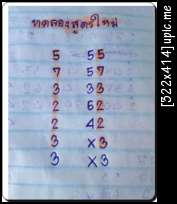 ทดลองสูตรใหม่
5 55
7 57
3 33
2 62
2 42
3 x3
3 x3
[322x414]upic.me